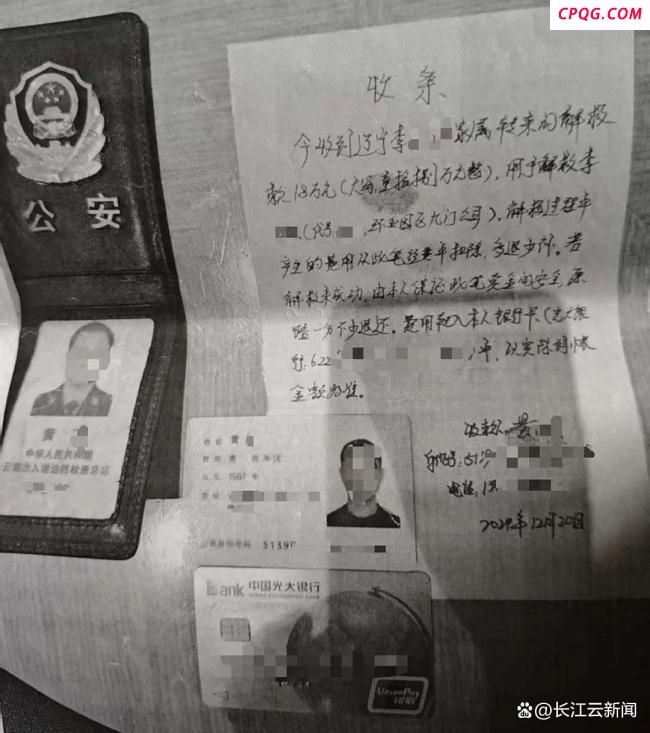 CPQG.COM
收条
今收到辽宁李 家属转来的解救
款18万元(大写
万元整),用于解救李
(代号
解救过程中
产生的费用从此笔资金中扣除,多退少补。若
解救未成功,由本人保证此笔资金的安全,原
路一分不少退还。费用转入本人银行卡(光大银
行:622
)中,以实际到帐
金额为准。
收款人:黄
身份证号:513
电话:1
2024年12月20日
公安
黄
中华人民共和国
云南出入境边防检查总站
姓名 黄
性别 男 民族 汉
出生 1987 年
住址
公民身份号码 5139
Bank 中国光大银行
CHINA EVERBRIGHT BANK
UnionPay
银联
长江云新闻